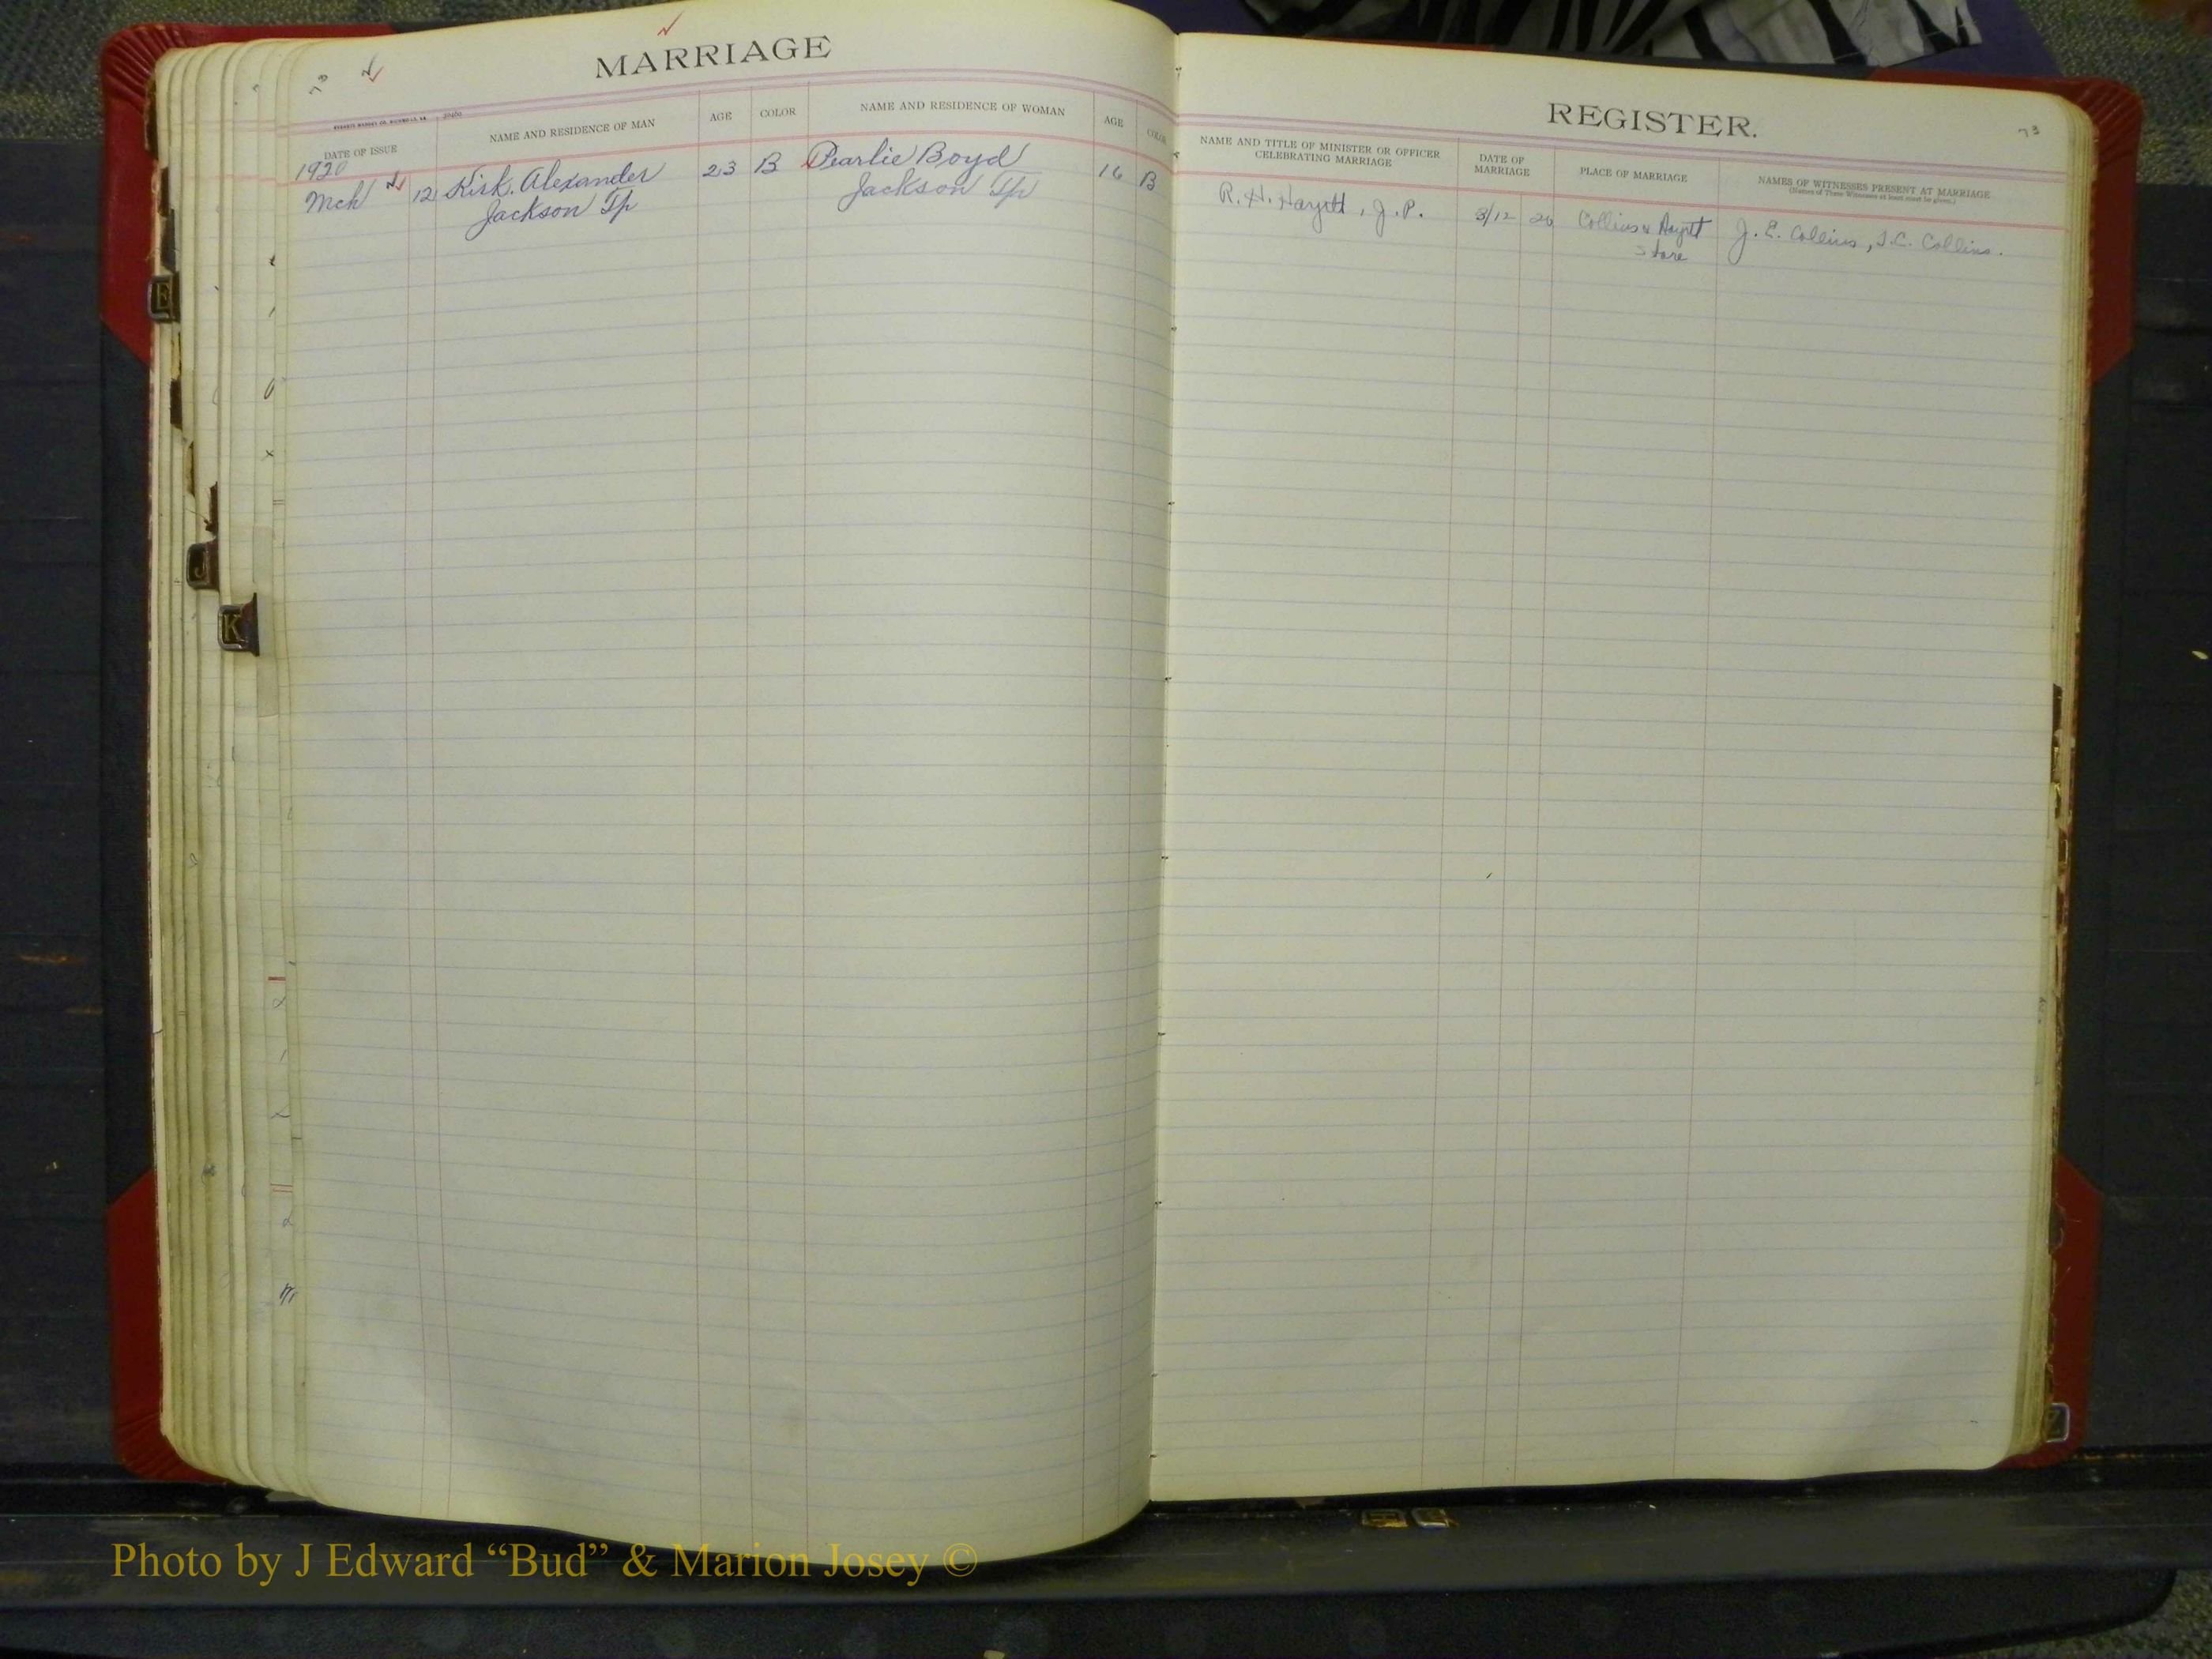 73
MARRIAGE
DATE OF ISSUE
NAME AND RESIDENCE OF MAN
AGE
COLOR
NAME AND RESIDENCE OF WOMAN
AGE
COLOR
1920
Mch 12 Kirk. Alexander 23 B Pearlie Boyd 16 B
Jackson Tp Jackson Tp
REGISTER.
73
NAME AND TITLE OF MINISTER OR OFFICER
CELEBRATING MARRIAGE
DATE OF
MARRIAGE
PLACE OF MARRIAGE
NAMES OF WITNESSES PRESENT AT MARRIAGE
(Names of Three Witnesses at least must be given.)
R. H. J.P. 3/12 20 Collins J. E. Collins, Collins.
Store
E
J
K
Z
Photo by J Edward “Bud” & Marion Josey ©